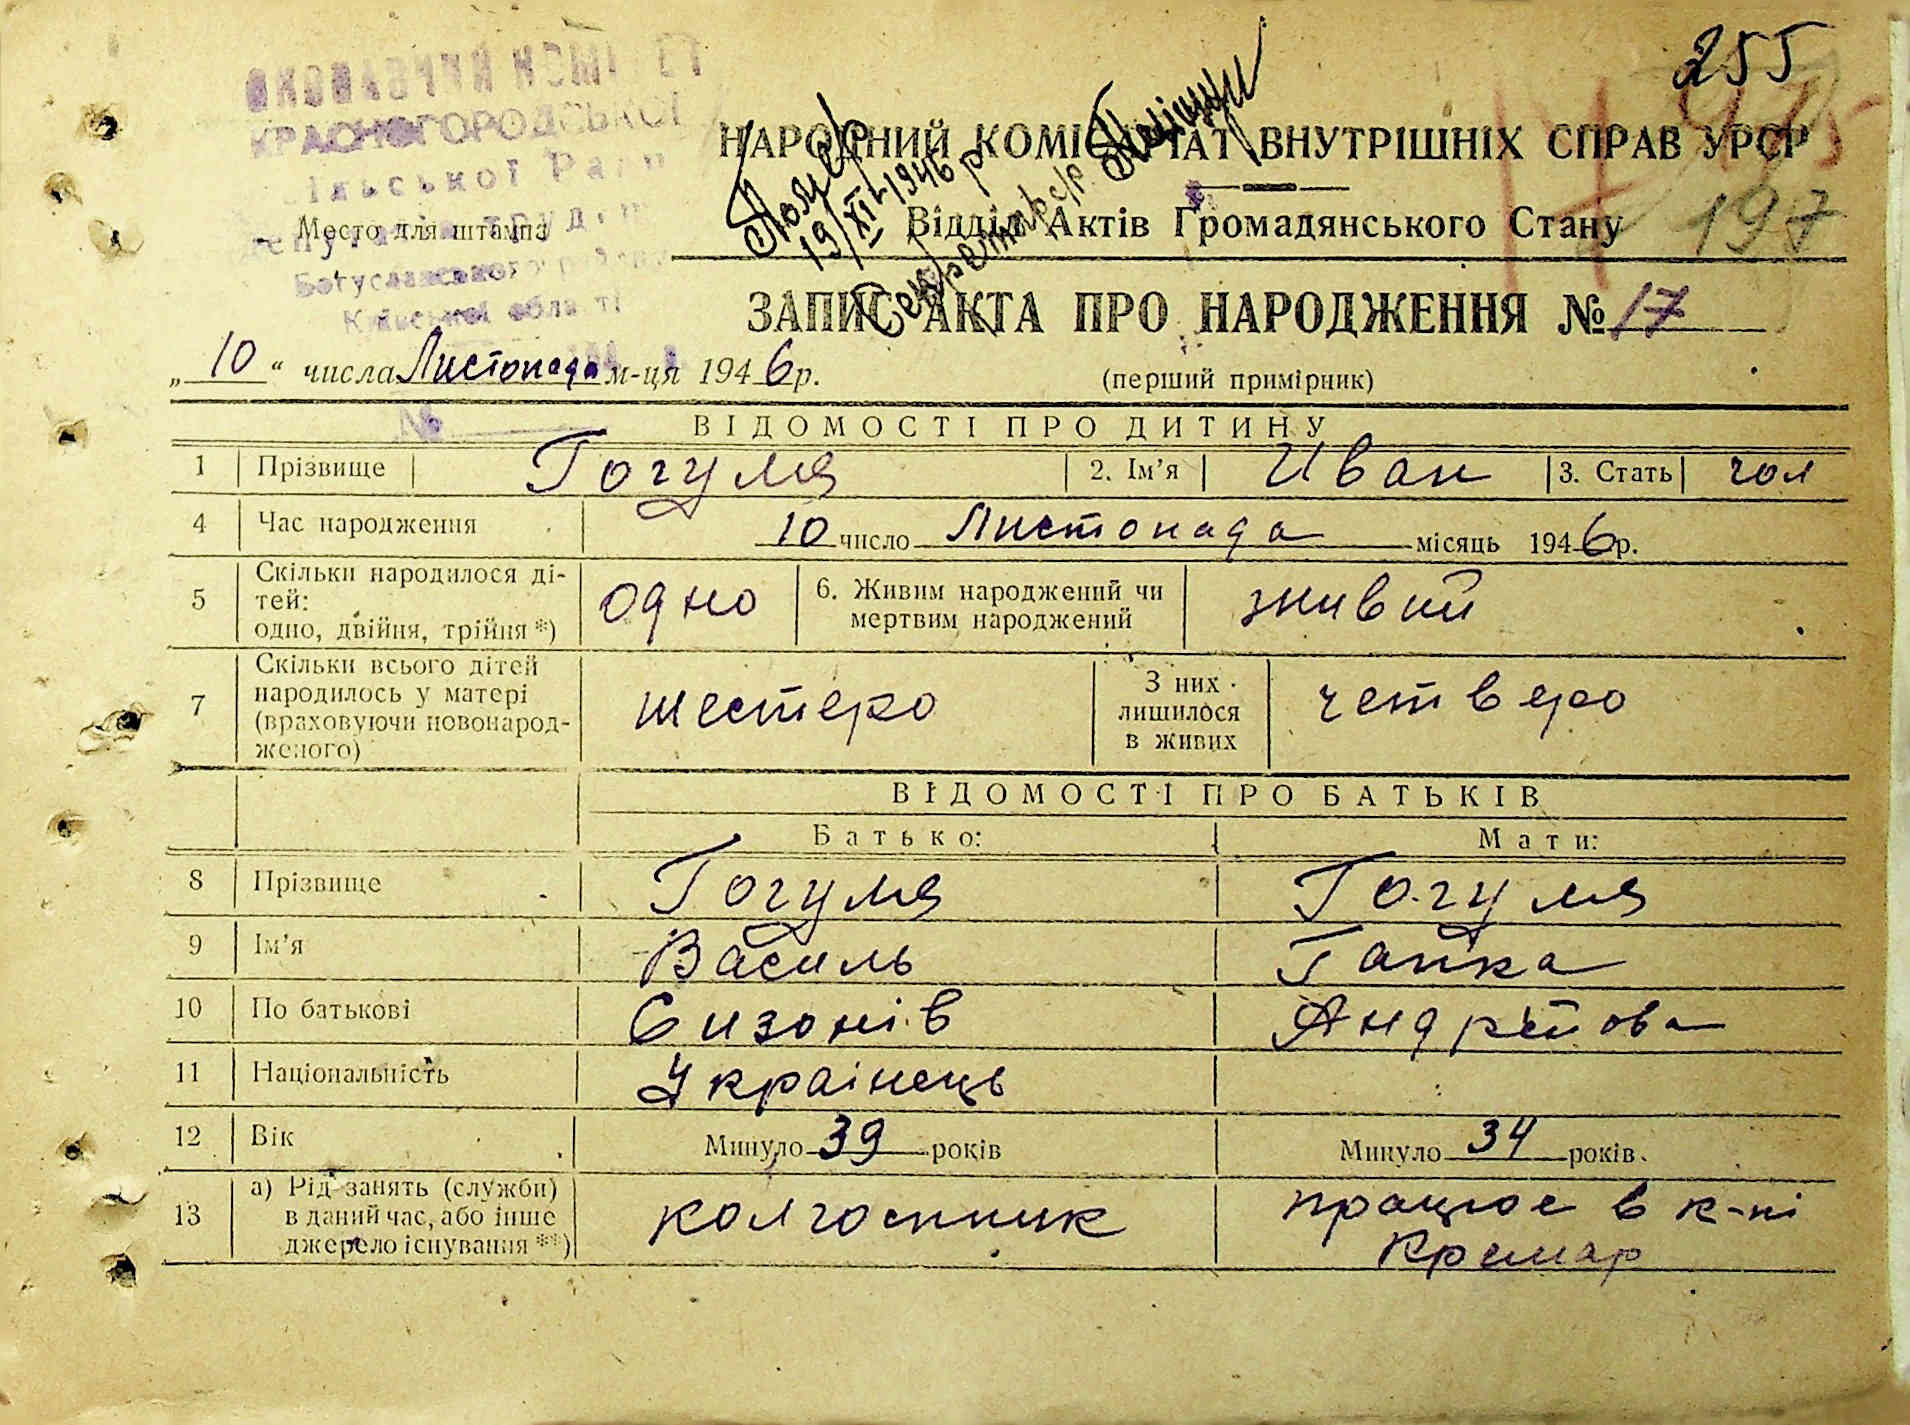 255
КРАСНОГОРОДСЬКОЇ
Место для штампа
Богуславського
Київської
НАРОДНИЙ КОМІСАРІАТ ВНУТРІШНІХ СПРАВ УРСР
Відділ Актів Громадянського Стану
197
Помер
19/XII-1946 р
Секретарь с/р
ЗАПИС АКТА ПРО НАРОДЖЕННЯ № 17
„10“ числа Листопада м-ця 1946 р.
(перший примірник)
№
ВІДОМОСТІ ПРО ДИТИНУ
1 Прізвище Гогуля 2. Ім’я Иван 3. Стать чол
4 Час народження 10 число Листопада місяць 1946 р.
5 Скільки народилося ді-
тей:
одно, двійня, трійня *) одно 6. Живим народжений чи
мертвим народжений живий
7 Скільки всього дітей
народилось у матері
(враховуючи новонарод-
женого) шестеро З них
лишилося
в живих четверо
ВІДОМОСТІ ПРО БАТЬКІВ
Батько: Мати:
8 Прізвище Гогуля Гогуля
9 Ім’я Василь Гапка
10 По батькові Сизонів Андрійова
11 Національність Українець
12 Вік Минуло 39 років Минуло 34 років.
13 а) Рід занять (служби)
в даний час, або інше
джерело існування **) колгоспник працює в к-пі